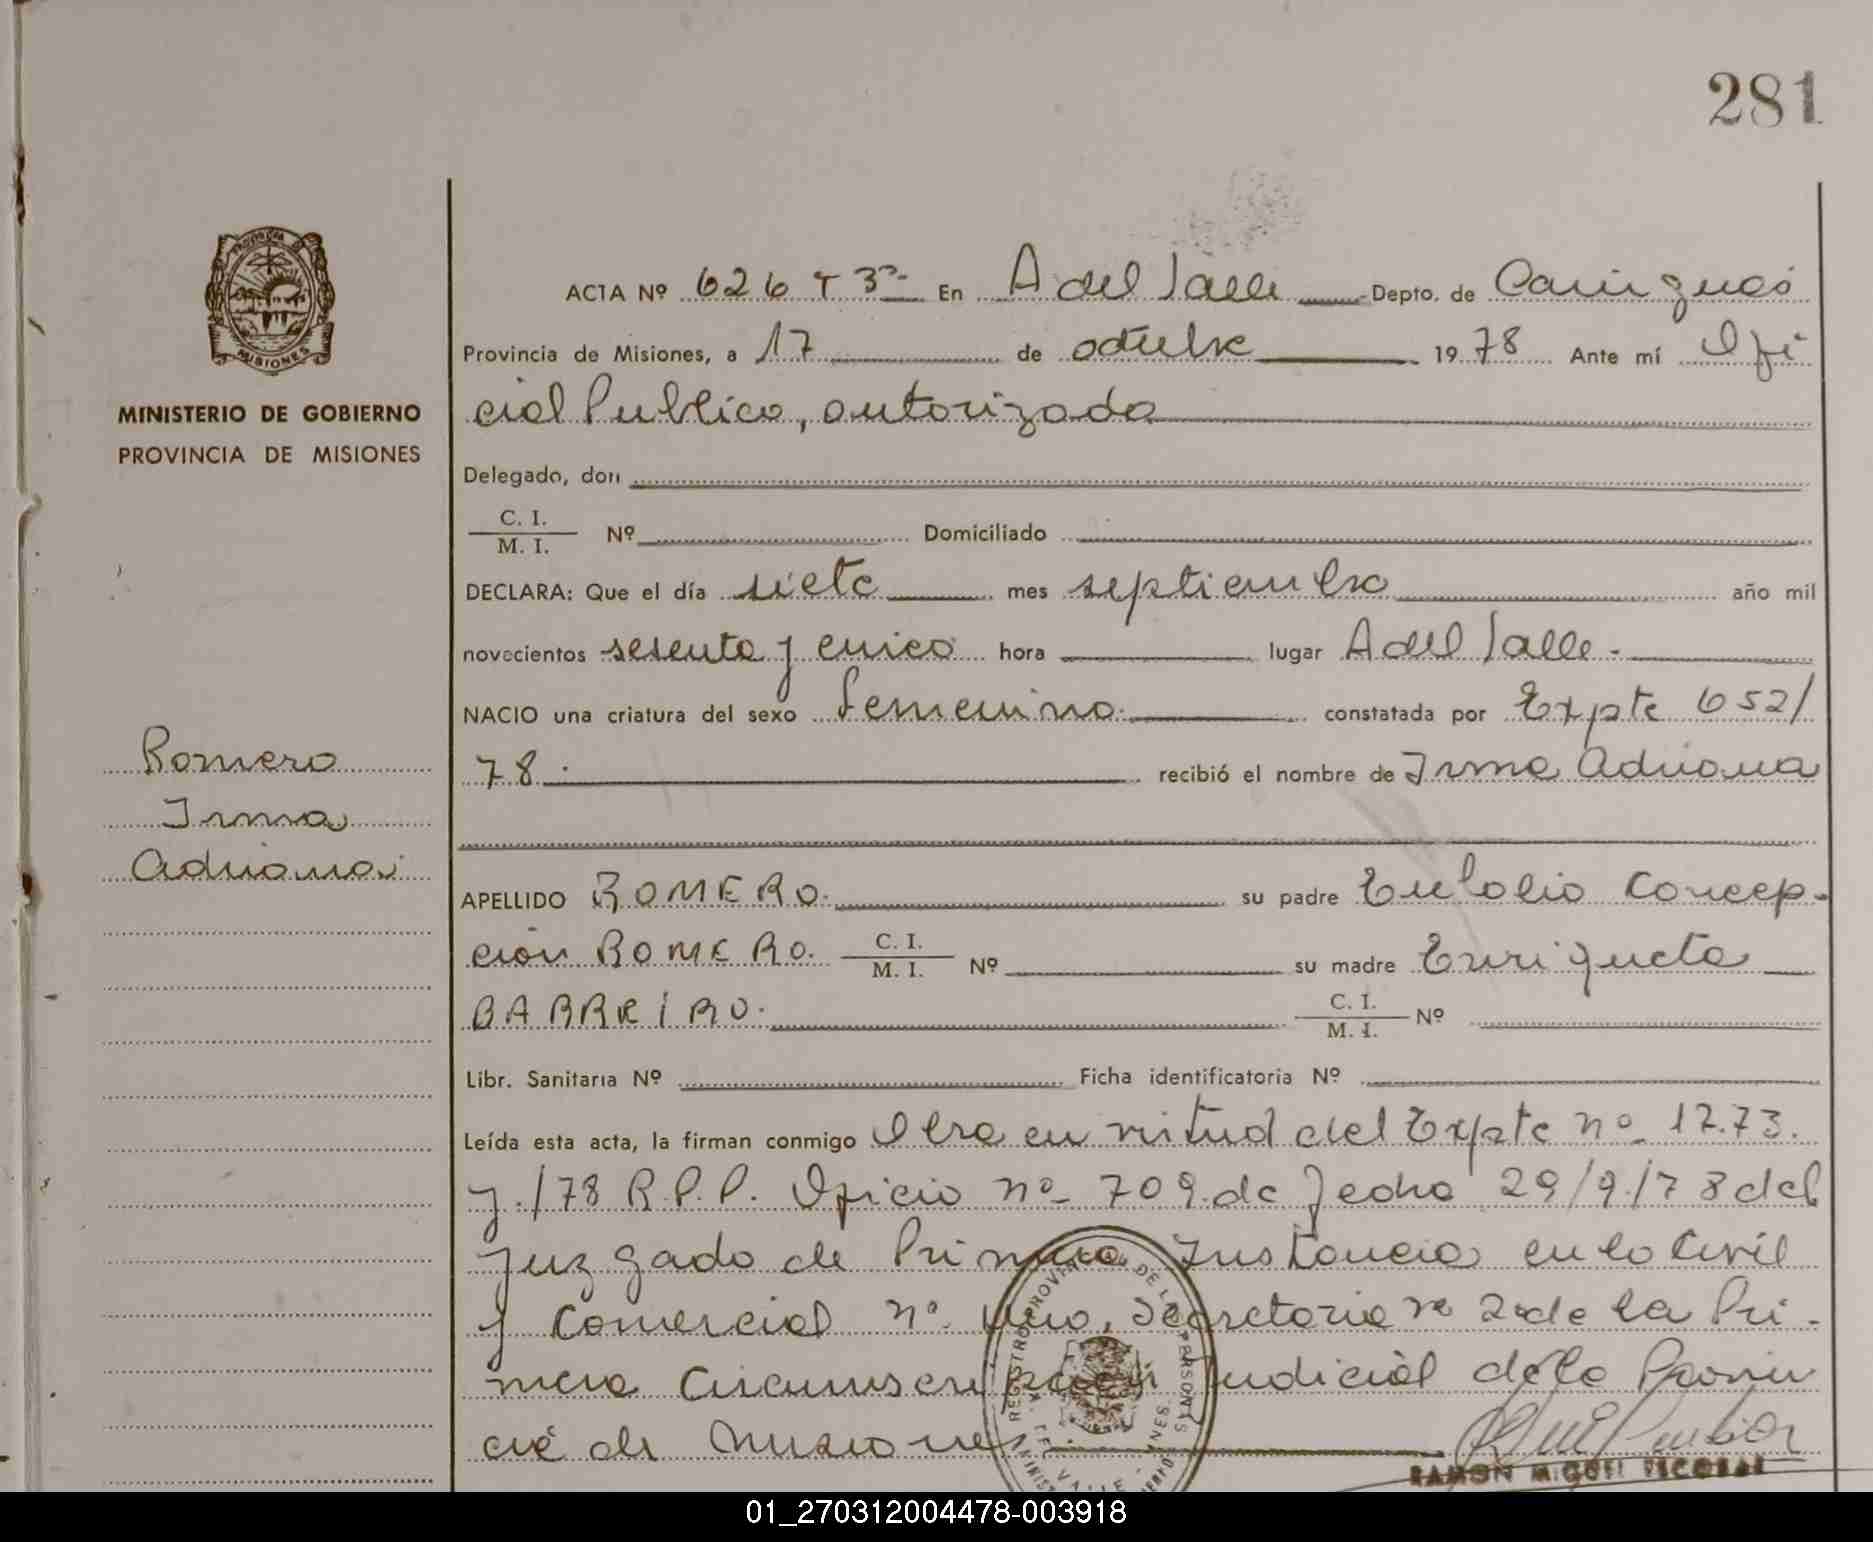 281
ACTA Nº 626 T 3º En A del Valle Depto. de Cainguás
Provincia de Misiones, a 17 de octubre 1978 Ante mí Ofi
cial Publico, autorizado
Delegado, don
C. I.
M. I. Nº Domiciliado
DECLARA: Que el día siete mes septiembre año mil
novecientos sesenta y cinco hora lugar A del Valle.
NACIO una criatura del sexo femenino. constatada por Expte 652/
78. recibió el nombre de Irma Adriana
APELLIDO ROMERO. su padre Eulolio Concep-
ción ROMERO. C. I. M. I. Nº su madre Enriqueta
BARREIRO. C. I. M. I. Nº
Libr. Sanitaria Nº Ficha identificatoria Nº
Leída esta acta, la firman conmigo Obra en virtud del Expte nº 1273.
J./78 R.P.P. Oficio nº 709 de fecha 29/9/78 del
Juzgado de Primera Instancia en lo Civil
y Comercial nº Uno, Secretaria nº 2 de la Pri-
mera Circunscripción Judicial de la Provin
cia de Misiones
RAMON MIGUEL ESCOBAR
REGISTRO PROVINCIAL DE LAS PERSONAS
A. DEL VALLE
PROVINCIA DE
MISIONES
MINISTERIO DE GOBIERNO
PROVINCIA DE MISIONES
Romero
Irma
Adriana
01_270312004478-003918